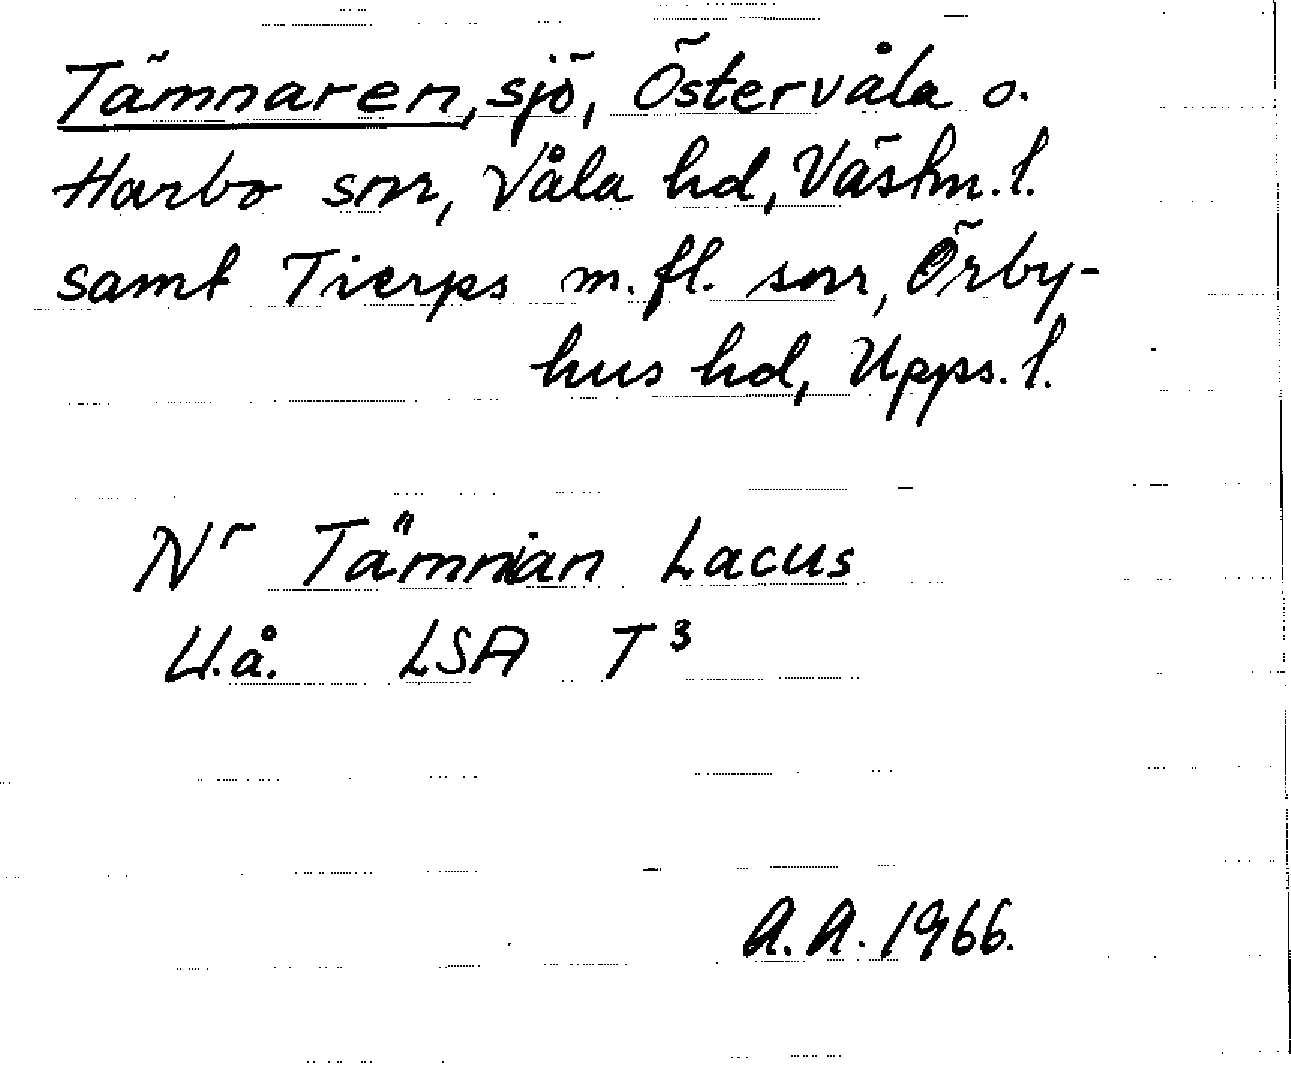 Tämnaren, sjö, Östervåla o.
Harbo snr, Våla hd, Västm. l.
samt Tierps m. fl. snr, Örby-
hus hd, Upps. l.
Nr Tämnian Lacus
U.å. LSA T³
A. A. 1966.